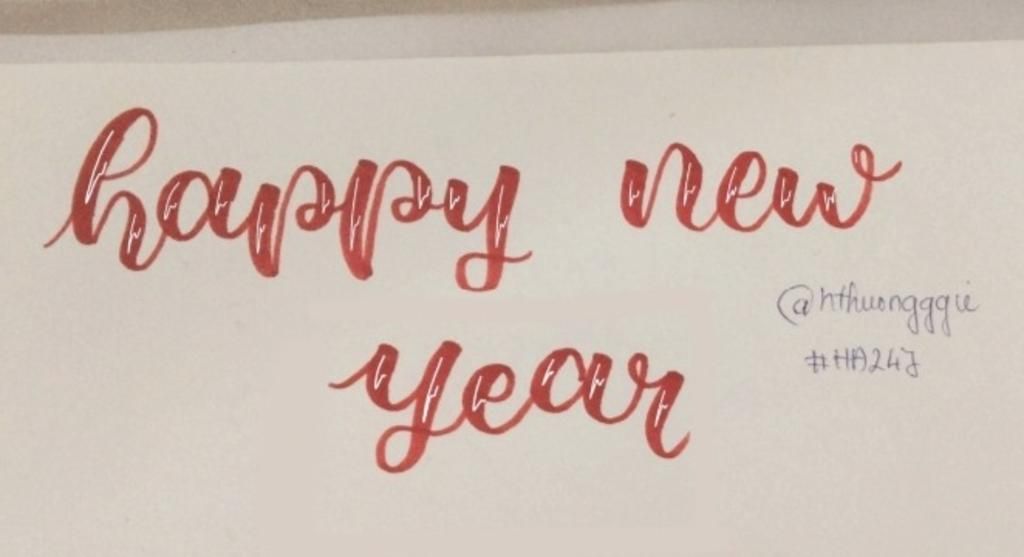 happy new
year
@hthuongggie
#HA247